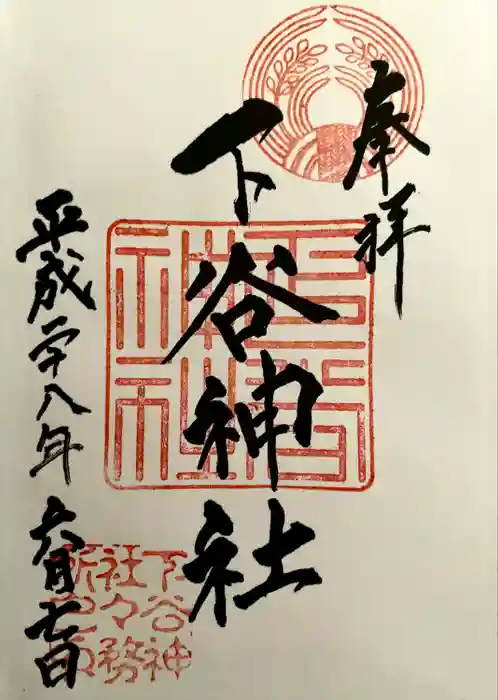 奉拝
下谷神社
平成二十八年 六月七日
下谷神
社々務
所之印